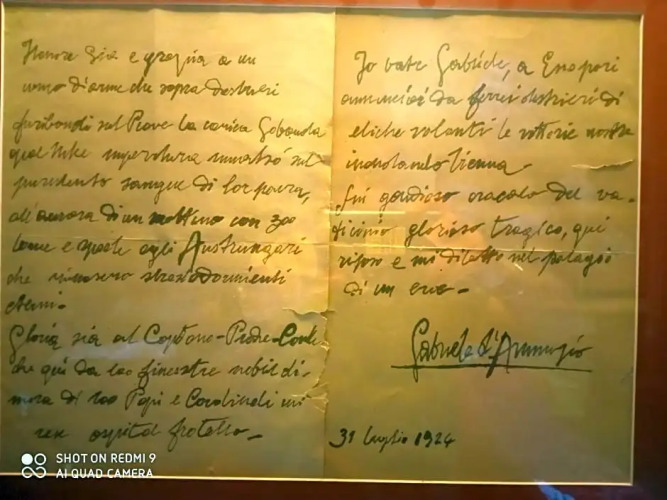 Honore sia e grazia a un
uomo d'arme che sopra destrieri
furibondi sul Piave la carica
qual Nike
sangue di lor paura,
all'aurora di un mattino con 300
lame e spade agli Austrungari
che rimasero
eterni.
Gloria sia al Capitano-Prode-Conte
che qui da 100 finestre nobil di-
mora di 100 Papi e Cardinali mi
ospital fratello.
Io vate Gabriele, a
annunciai da ferrei destrieri di
eliche volanti le vittorie nostre
Vienna.
Fui gaudioso oracolo del va-
ticinio glorioso tragico, qui
riposo e mi diletto nel palagio
di un eroe.
Gabriele d'Annunzio
31 luglio 1924
SHOT ON REDMI 9
AI QUAD CAMERA